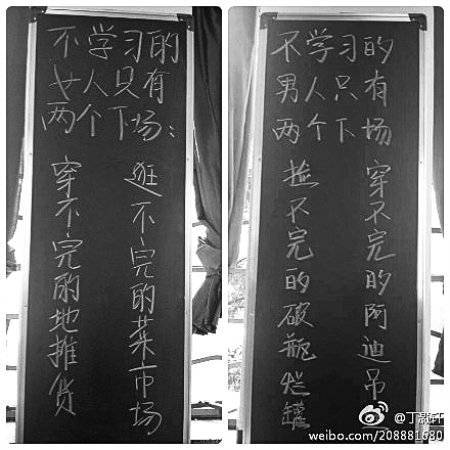 不学习的
女人只有
两个下场:
穿不完的地摊货
逛不完的菜市场
不学习的
男人只有
两个下场
捡不完的破瓶烂罐
穿不完的阿迪吊
weibo.com/208881680